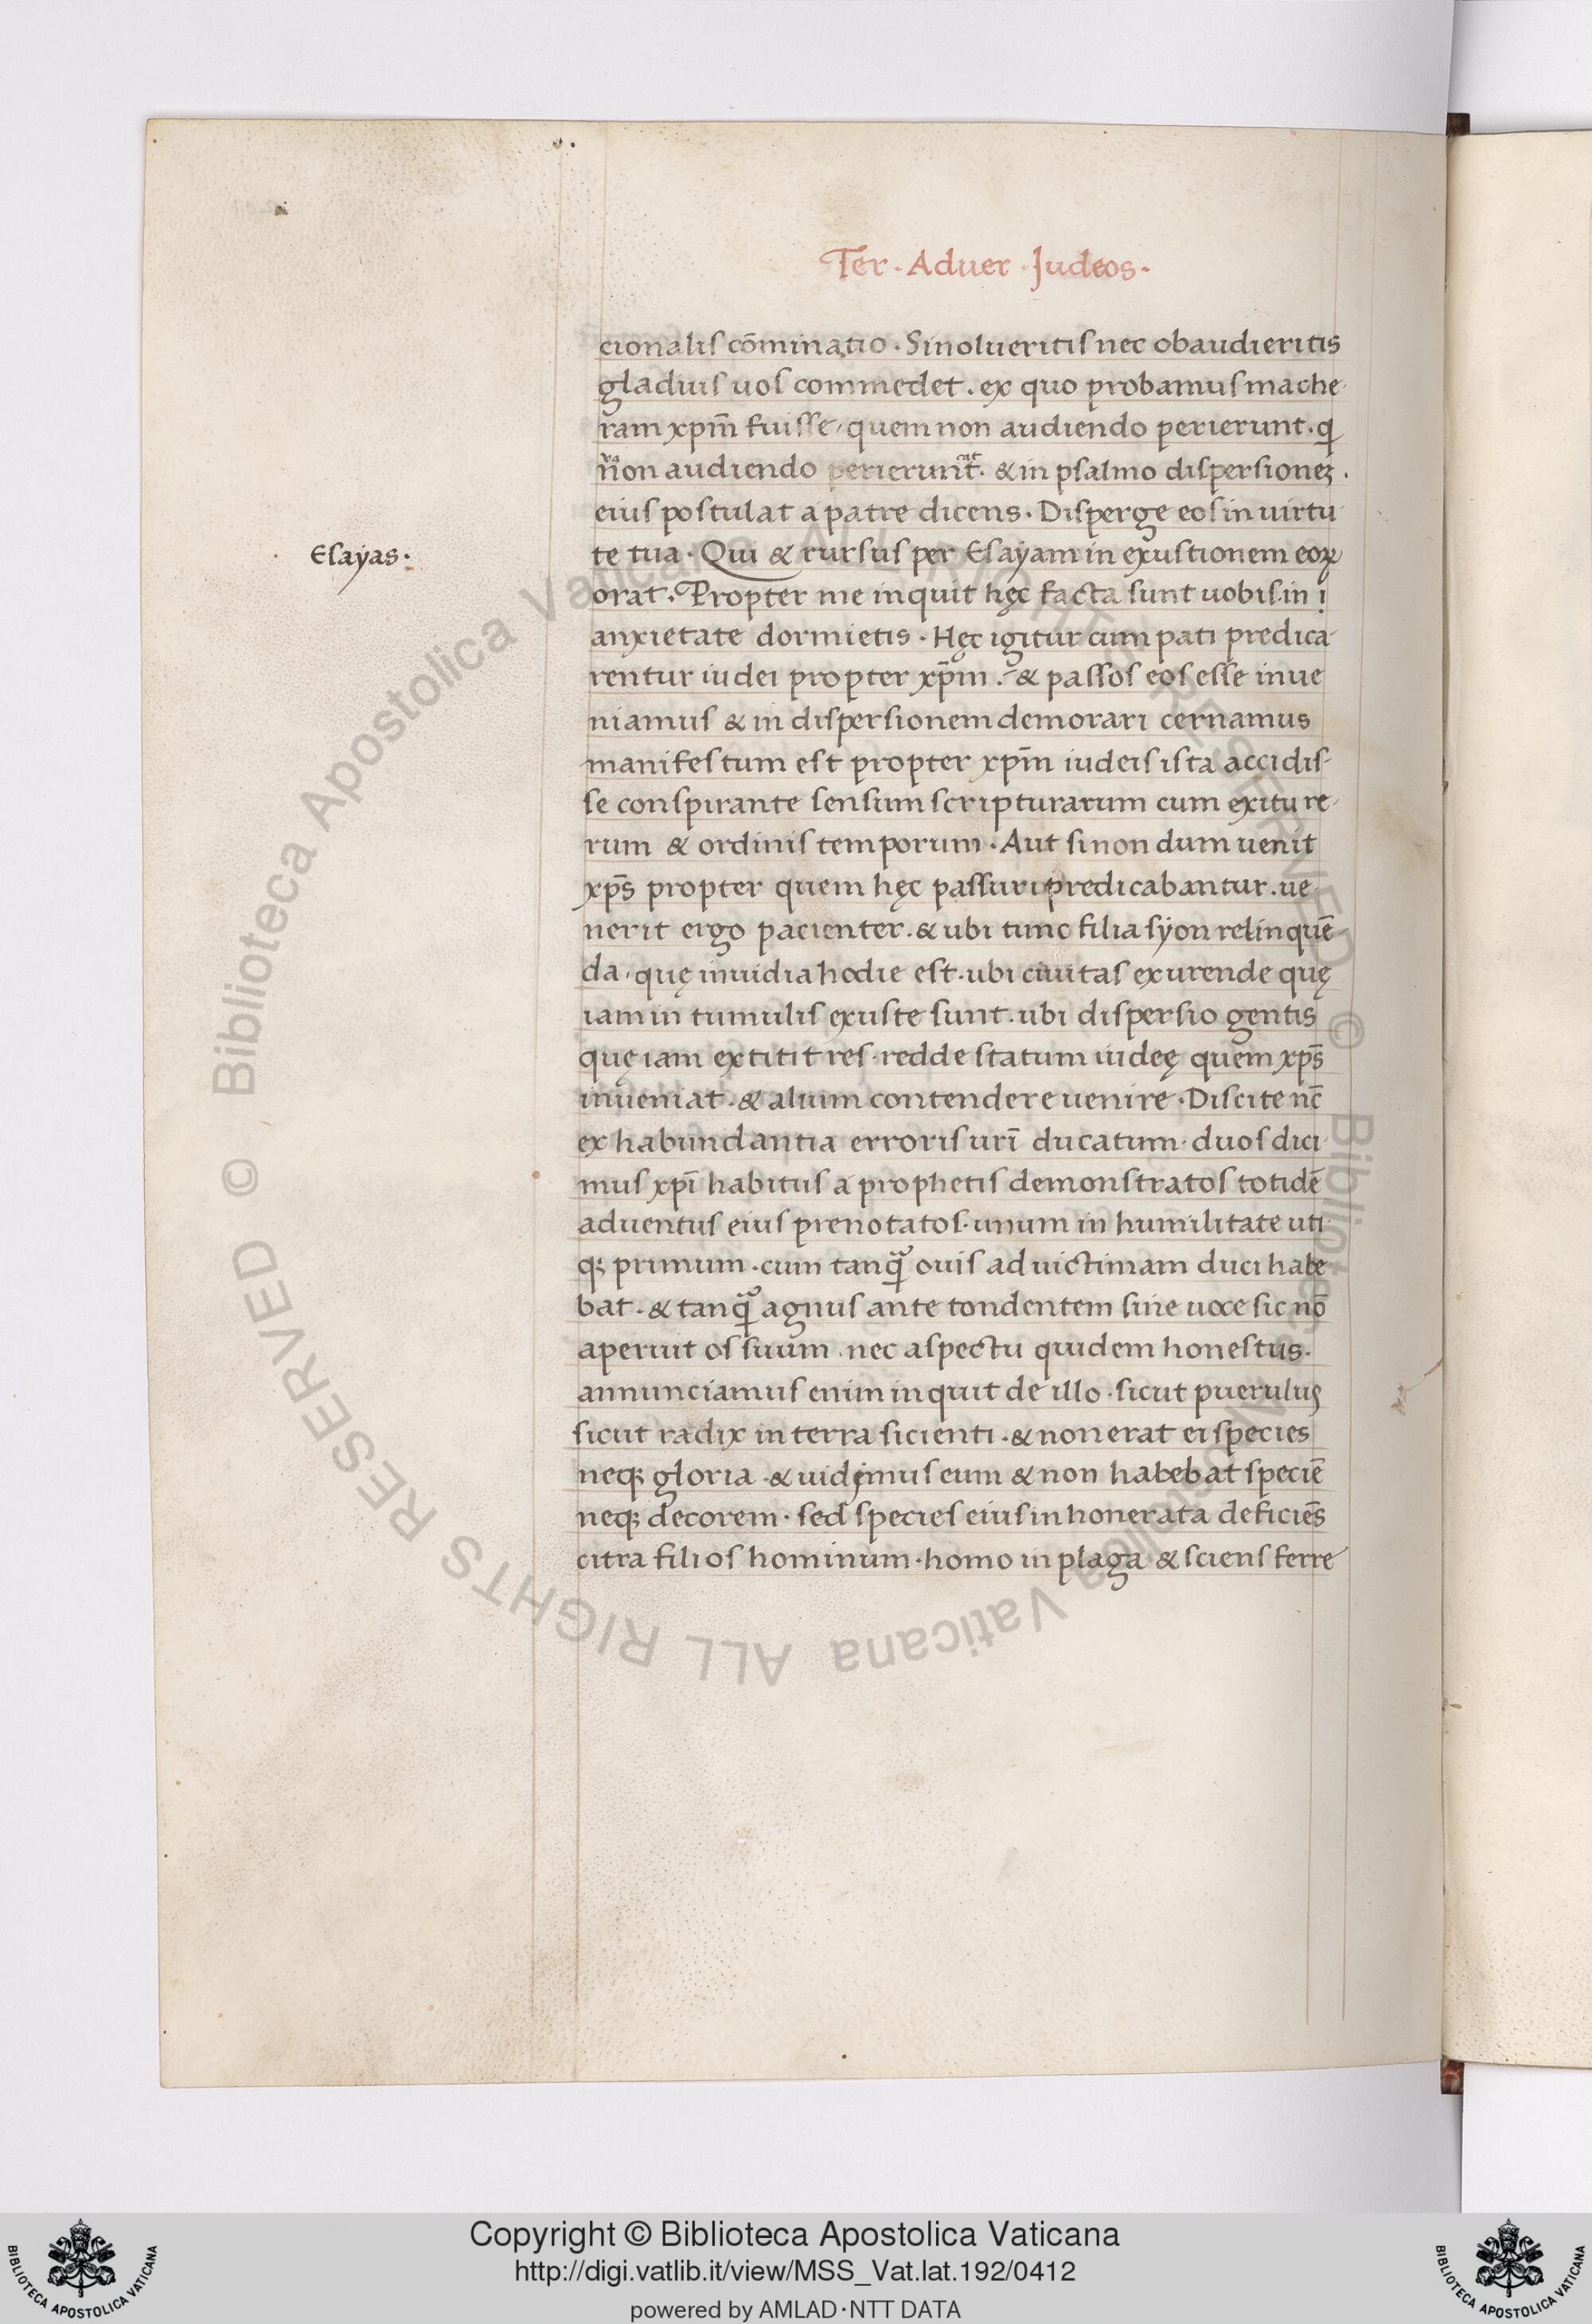 Ter · Aduer · Judeos ·
cionalis cōminatio · Si nolueritis nec obaudieritis
gladius uos commedet . ex quo probamus mache
ram xp̄m fuisse, quem non audiendo perierunt . q
non audiendo perierunt . & in psalmo dispersionez .
eius postulat a patre dicens . Disperge eos in uirtu
Esayas .
te tua . Qui & rursus per Esayam in exustionem eoꝝ
orat . Propter me inquit hęc facta sunt uobis . in
anxietate dormietis . Hęc igitur cum pati predica
rentur iudei propter xp̄m . & passos eos esse inue
niamus & in dispersionem demorari cernamus
manifestum est propter xp̄m iudeis ista accidis
se conspirante sensum scripturarum cum exitu re
rum & ordinis temporum . Aut si non dum uenit
xp̄s propter quem hęc passuri predicabantur . ue
nerit ergo pacienter . & ubi tunc filia syon relinquē
da, quę inuidia hodie est . ubi ciuitas exurende quę
iam in tumulis exuste sunt . ubi dispersio gentis
quę iam extitit res . redde statum iudeę quem xp̄s
inueniat . & alium contendere uenire . Discite nc̄
ex habundantia erroris uri̅ ducatum . duos dici
mus xpi̅ habitus a prophetis demonstratos totidē
aduentus eius prenotatos . unum in humilitate uti
qꝫ primum . cum tanq̃ ouis ad uictimam duci habe
bat . & tanq̃ agnus ante tondentem sine uoce sic nō
aperuit os suum . nec aspectu quidem honestus .
annunciamus enim inquit de illo . sicut puerulus
sicut radix in terra sicienti . & non erat ei species
neqꝫ gloria . & uidimus eum & non habebat speciē
neqꝫ decorem . sed species eius in honerata deficiēs
citra filios hominum . homo in plaga & sciens ferre
© Biblioteca Apostolica Vaticana ALL RIGHTS RESERVED © Biblioteca Apostolica Vaticana ALL RIGHTS RESERVED
Copyright © Biblioteca Apostolica Vaticana
http://digi.vatlib.it/view/MSS_Vat.lat.192/0412
powered by AMLAD·NTT DATA
BIBLIOTECA APOSTOLICA VATICANA
BIBLIOTECA APOSTOLICA VATICANA